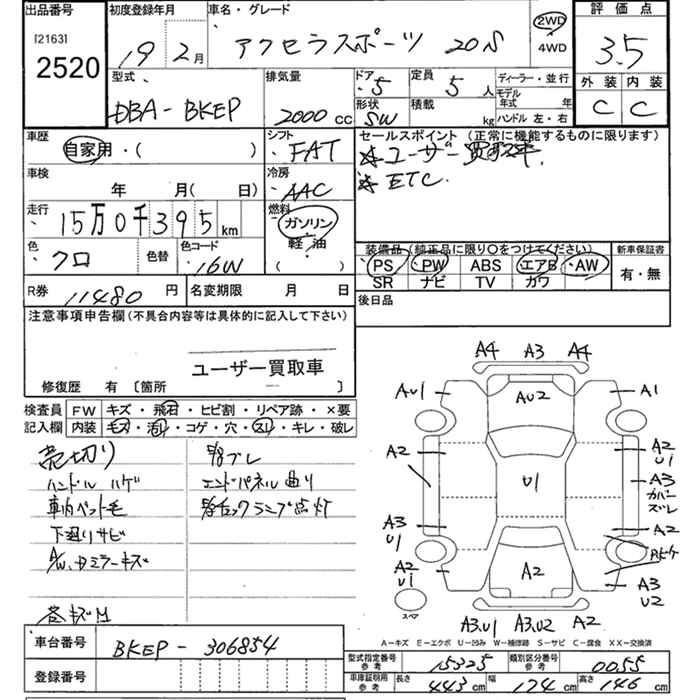 出品番号
[2163]
2520
初度登録年月
19年2月
車名・グレード
アクセラスポーツ 20S
2WD
・
4WD
評価点
3.5
外装 内装
C C
型式
DBA-BKEP
排気量
2000cc
ドア
5
形状
SW
定員
5人
積載
kg
ディーラー・並行
モデル
年式 年
ハンドル 左・右
車歴
自家用・( )
シフト
FAT
車検
年 月( 日)
冷房
AAC
走行
15万0千395km
燃料
ガソリン
軽・油
( )
色
クロ
色替
色コード
16W
R券
11480円
名変期限 月 日
セールスポイント(正常に機能するものに限ります)
ユーザー買取車
ETC
装備品(純正品に限り○をつけてください)
PS PW ABS エアB AW
SR ナビ TV カワ
新車保証書
有・無
後日品
注意事項申告欄(不具合内容等は具体的に記入して下さい)
ユーザー買取車
修復歴 有〔箇所 〕
検査員
記入欄
FW キズ・飛石・ヒビ割・リペア跡・×要
内装 キズ・汚レ・コゲ・穴・スレ・キレ・破レ
売切り
ハンドルハゲ
車内ペット毛
下廻りサビ
A/W、Dミラーキズ
各キズ凹
エンドパネル曲り
ランプ点灯
A4 A3 A4
AU1 AU2 A1
A2 A2
U1
U1 A3
カバー
ズレ
A3
U1
A2
A2
U1
A2
A3
U2
スペア
A3.U1 A3.U2 A2
A-キズ E-エクボ U-凹み W-補修跡 S-サビ C-腐食 XX-交換済
車台番号 BKEP-306854
登録番号
型式指定番号
参考
15325
類別区分番号
参考
0055
車庫証明用
参考
長さ 443cm 幅 174cm 高さ 146cm